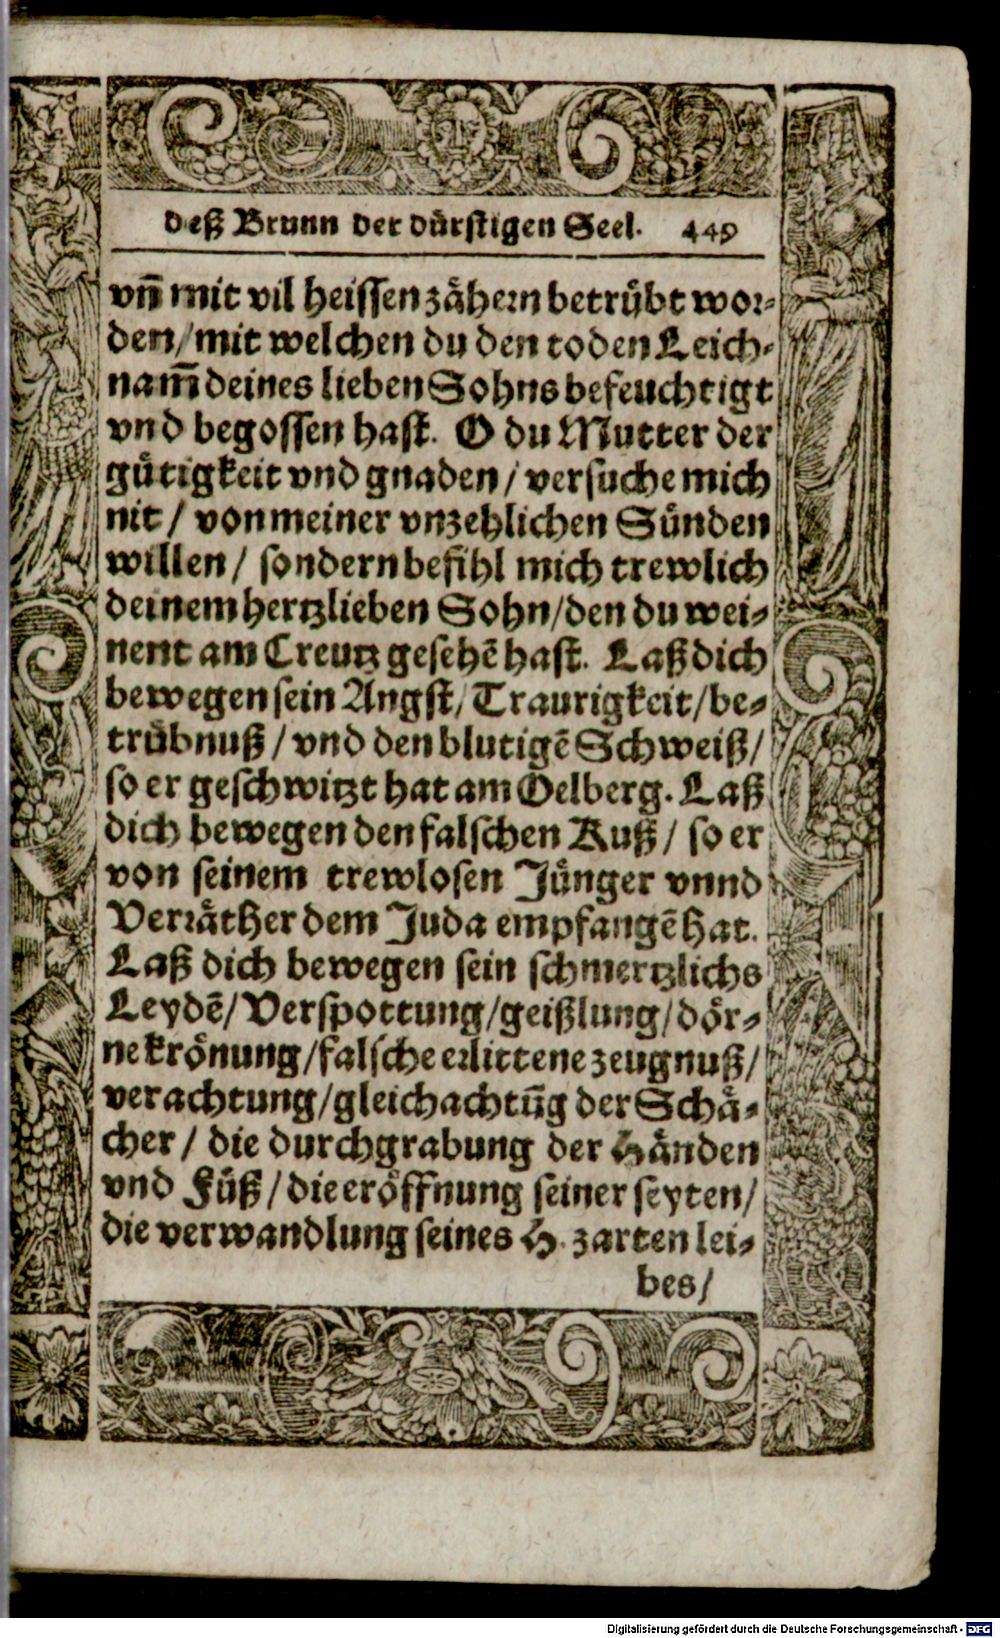 deß Brunn der dürstigen Seel. 449
vñ mit vil heissen zähern betrübt wor-
den/mit welchen du den toden Leich-
nam̄ deines lieben Sohns befeuchtigt
vnd begossen hast. O du Mutter der
gütigkeit vnd gnaden / versuche mich
nit / von meiner vnzehlichen Sünden
willen / sondern befihl mich trewlich
deinem hertzlieben Sohn/den du wei-
nent am Creutz gesehē hast. Laß dich
bewegen sein Angst/Traurigkeit/be-
trübnuß / vnd den blutigē Schweiß/
so er geschwitzt hat am Oelberg. Laß
dich bewegen den falschen Kuß / so er
von seinem trewlosen Jünger vnnd
Verräther dem Juda empfangē hat.
Laß dich bewegen sein schmertzlichs
Leydē/Verspottung/geißlung/dör-
ne krönung/falsche erlittene zeugnuß/
verachtung/gleichachtūg der Schä-
cher / die durchgrabung der Händen
vnd Füß / die eröffnung seiner seyten/
die verwandlung seines H. zarten lei-
bes/
Digitalisierung gefördert durch die Deutsche Forschungsgemeinschaft - DFG